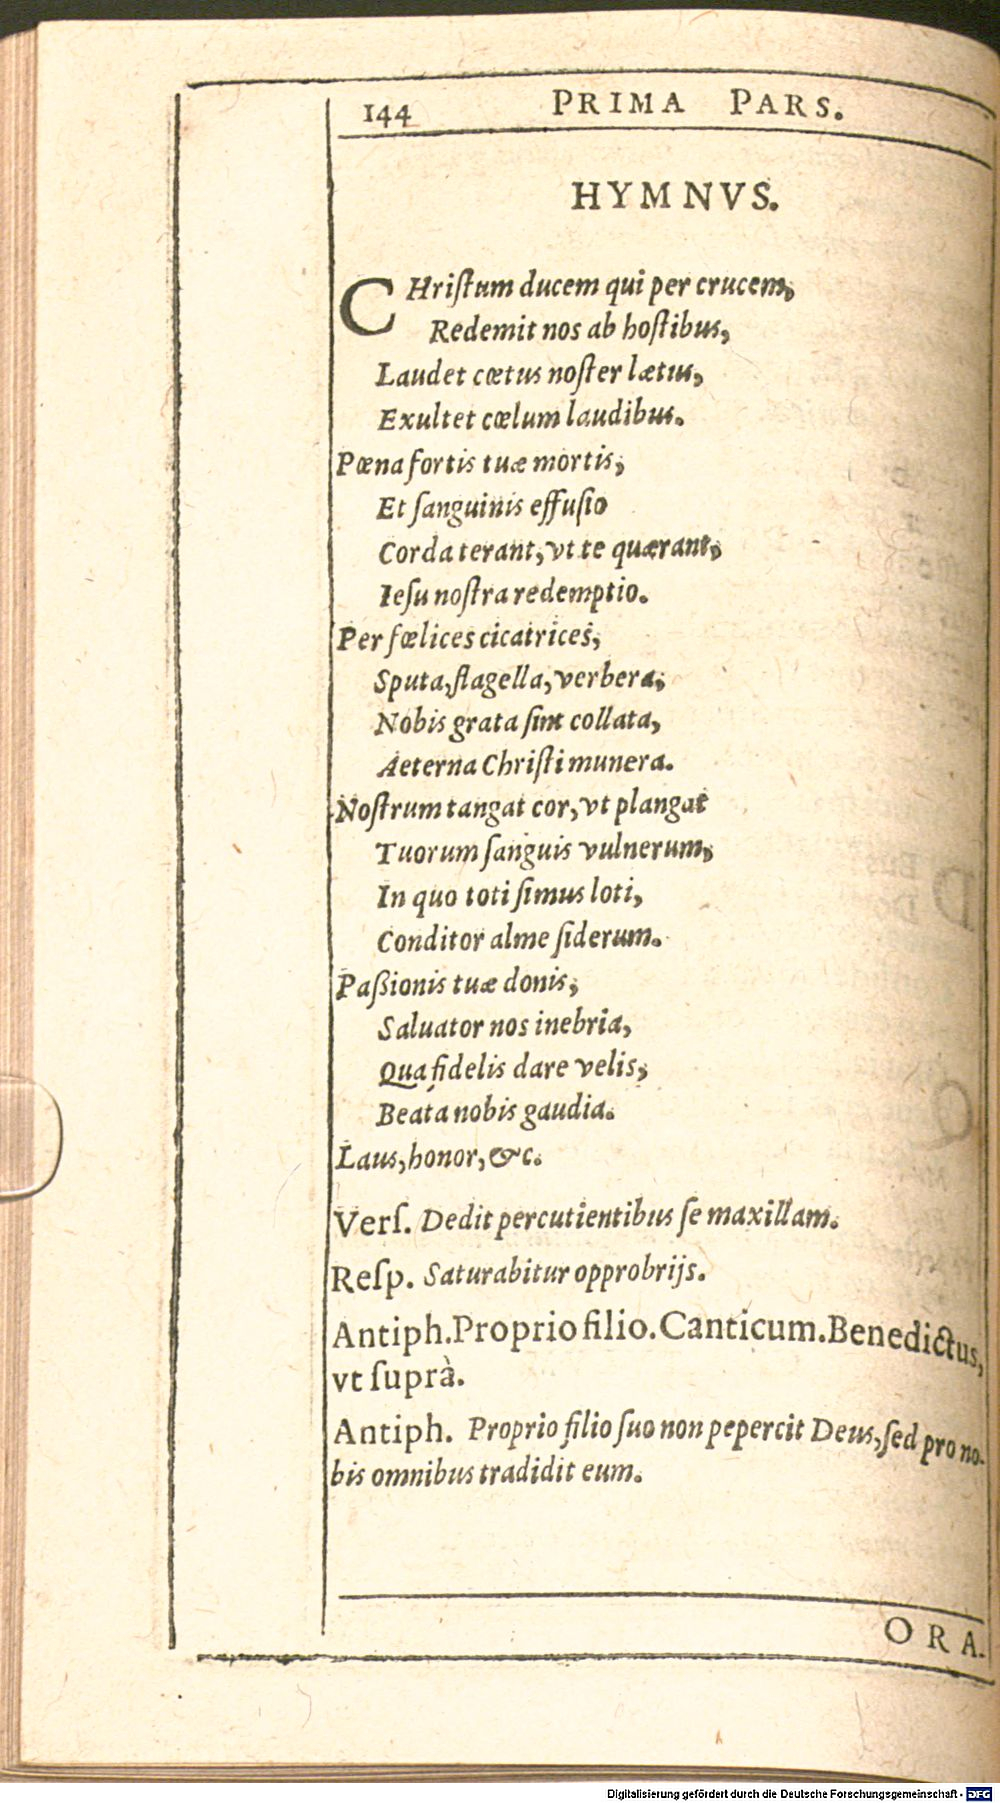 144 PRIMA PARS.
HYMNVS.
CHriſtum ducem qui per crucem,
Redemit nos ab hoſtibus,
Laudet cœtus noſter lætus,
Exultet cœlum laudibus.
Pœna fortis tuæ mortis,
Et ſanguinis effuſio
Corda terant, vt te quærant,
Ieſu noſtra redemptio.
Per fœlices cicatrices,
Sputa, flagella, verbera,
Nobis grata ſint collata,
Aeterna Chriſti munera.
Noſtrum tangat cor, vt plangat
Tuorum ſanguis vulnerum,
In quo toti ſimus loti,
Conditor alme ſiderum.
Paßionis tuæ donis,
Saluator nos inebria,
Qua fidelis dare velis,
Beata nobis gaudia.
Laus, honor, &c.
Verſ. Dedit percutientibus ſe maxillam.
Reſp. Saturabitur opprobrijs.
Antiph. Proprio filio. Canticum. Benedictus,
vt ſuprà.
Antiph. Proprio filio ſuo non pepercit Deus, ſed pro no-
bis omnibus tradidit eum.
ORA-
Digitalisierung gefördert durch die Deutsche Forschungsgemeinschaft - DFG